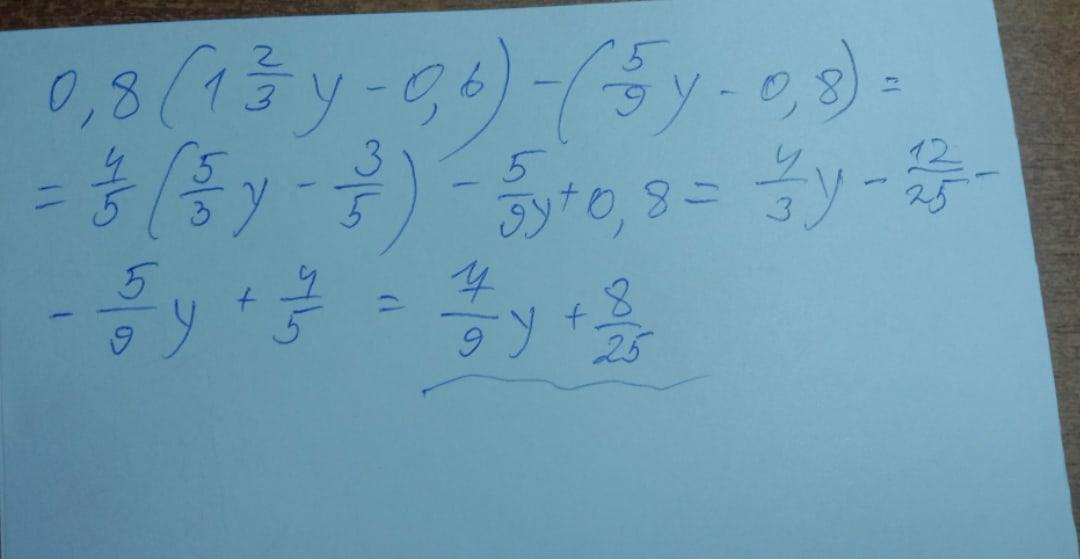 0,8(1 2/3 y - 0,6) - (5/9 y - 0,8) =
= 4/5 (5/3 y - 3/5) - 5/9y + 0,8 = 4/3 y - 12/25 -
- 5/9 y + 4/5 = 7/9 y + 8/25